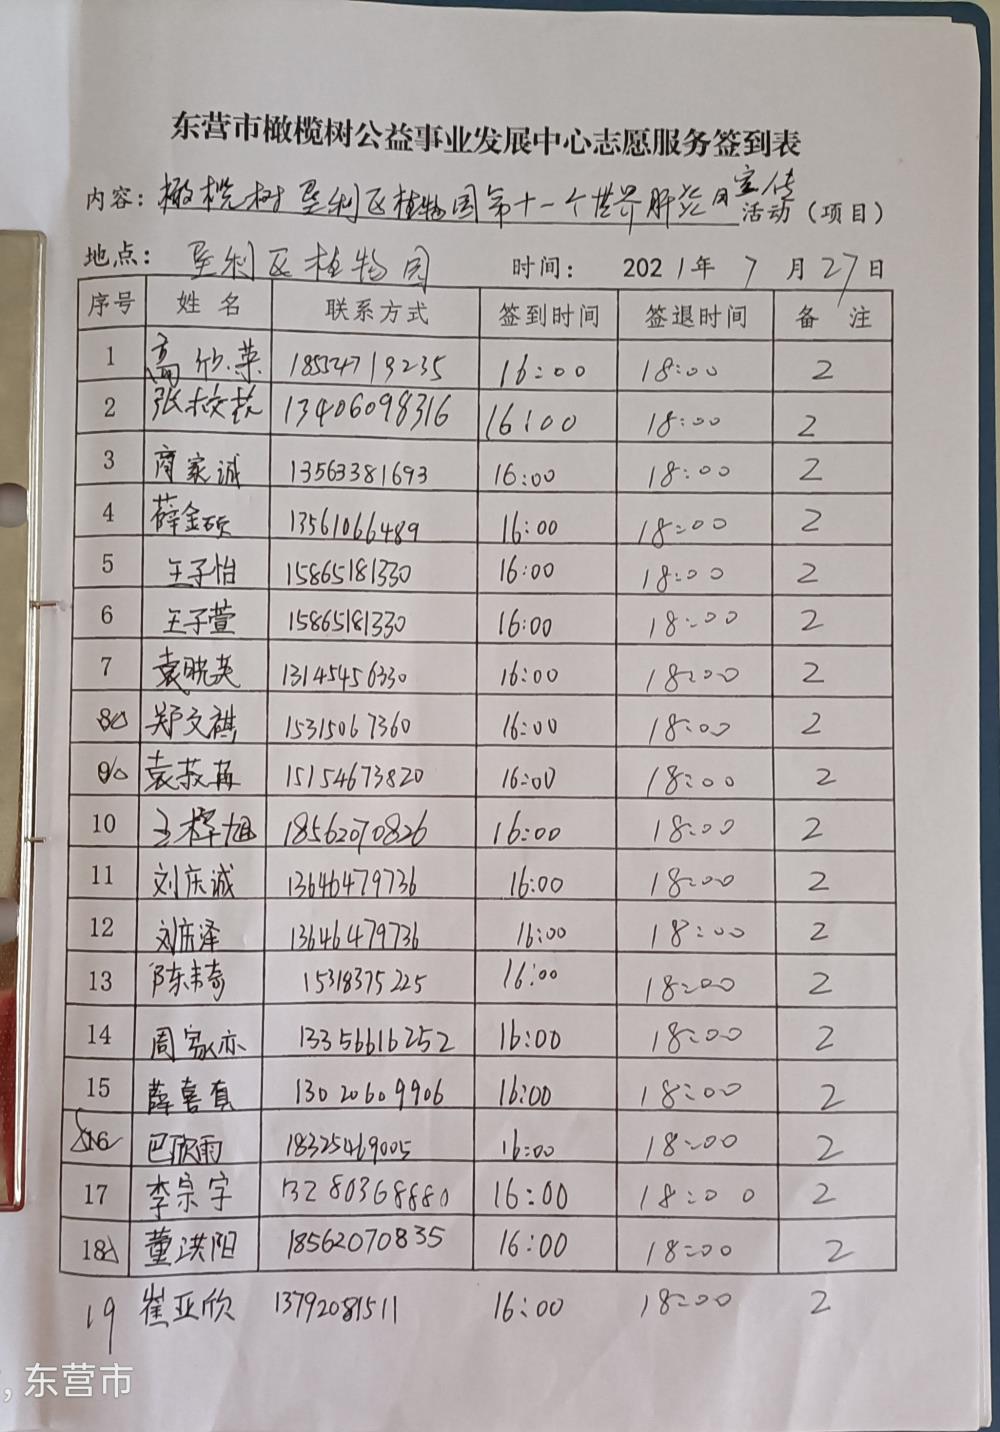 东营市橄榄树公益事业发展中心志愿服务签到表
内容：橄榄树垦利区植物园第十一个世界肝炎日宣传活动（项目）
地点：垦利区植物园 时间：2021年7月27日
序号 姓名 联系方式 签到时间 签退时间 备注
1 高欣荣 18554719235 16:00 18:00 2
2 张 13406098316 16:00 18:00 2
3 商家诚 13563381693 16:00 18:00 2
4 薛金硕 13561066489 16:00 18:00 2
5 王子怡 15865181330 16:00 18:00 2
6 王子萱 15865181330 16:00 18:00 2
7 袁晓英 13145456330 16:00 18:00 2
8 郑文祺 15315067360 16:00 18:00 2
9 袁 15154673820 16:00 18:00 2
10 王梓旭 18562070826 16:00 18:00 2
11 刘庆诚 13646479736 16:00 18:00 2
12 刘庆泽 13646479736 16:00 18:00 2
13 陈 15318375225 16:00 18:00 2
14 周家亦 13356616252 16:00 18:00 2
15 薛喜真 13020609906 16:00 18:00 2
16 巴欣雨 18325469005 16:00 18:00 2
17 李宗宇 13280368880 16:00 18:00 2
18 董洪阳 18562070835 16:00 18:00 2
19 崔亚欣 13792081511 16:00 18:00 2
, 东营市